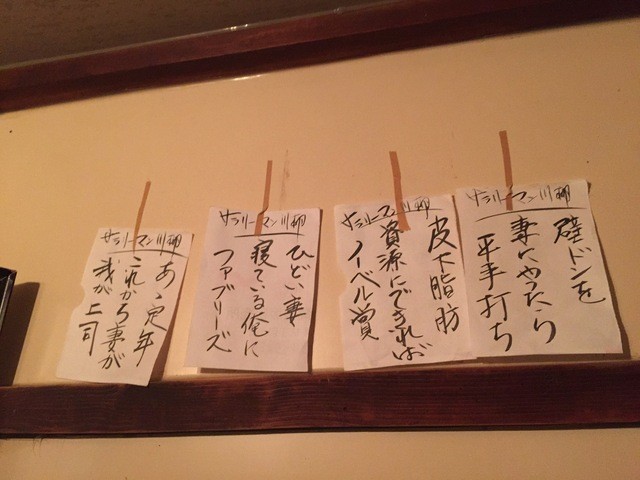 サラリーマン川柳
壁ドンを
妻にやったら
平手打ち
サラリーマン川柳
皮下脂肪
資源にできれば
ノーベル賞
サラリーマン川柳
ひどい妻
寝ている俺に
ファブリーズ
サラリーマン川柳
あゝ定年
これから妻が
我が上司